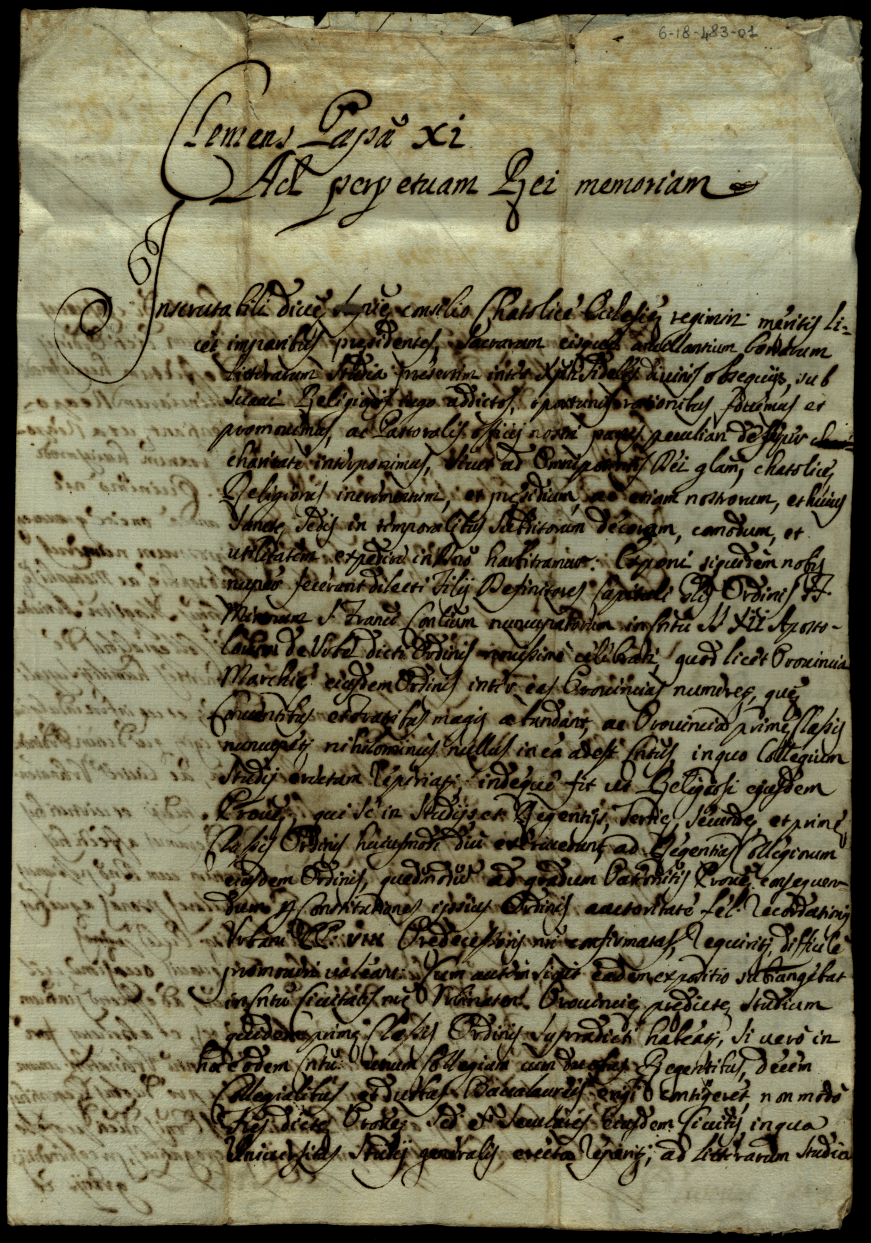 6-18-483-01
Clemens Papa XI
Ad perpetuam Rei memoriam
Inscrutabili divinę consilio Chatolicę Ecclesię regimini meritis li-
cet imparibus presidentes, bonarum
litterarum studia presertim inter Xpti fideles divinis obsequijs, sub
suavi Religionis iugo addictos, oportunis fovemus et
promovemus, ac Pastoralis officij nostri partes peculiari desuper
charitate interponimus, sicut ad Omnipotentis Dei glam, chatolicę
Religionis incrementum, et presidium, ac etiam nostrorum, et huius
Sanctę Sedis in temporalibus subditorum decorem, comodum, et
utilitatem expedire in Dno harbitramur. Exponi siquidem nobis
nuper fecerunt dilecti filij Definitores Capituli Ordinis FF.
Minorum S. Franci Conlium nuncupatorum in Sti XII Aposto-
lorum de Urbe dicti Ordinis novissime celebrati, quod licet Provincia
Marchię eiusdem Ordinis inter eas Provincias numeres, quę
Conventibus magis abundant, ac Provincia primę classis
nuncupetj nihilominus nullus in ea adest in quo Collegium
studij erectum reperiatj, indeque fit ut Religiosi eiusdem
Provę, qui se in studijs et Regentijs, tertię, secundę, et primę
Classis Ordinis huiusmodi diu exercuerunt, ad Regentias Collegiorum
eiusdem Ordinis, ad gradum Provę consequen-
dum Constitutiones ipsius Ordinis auctoritate fel: Recordationis
Urbani PP. VIII Predecessoris nri confirmatas, requiritj, difficile
promoveri valeant. Cum autem sicut eadem expositio subiungebat
in Civitatis nrę Urbinaten Provincię predictę studium
quidem primę Classis Ordinis supradicti habeatj, si vero in
hoc eodem unum Collegium cum duobus Regentibus, decem
Collegialibus et duobus Baccalaureis erigi contigeret non modo
dictę Provę sed et seculares eiusdem Civitis in qua
Universitas studij generalis erecta reperitj, ad litterarum studia